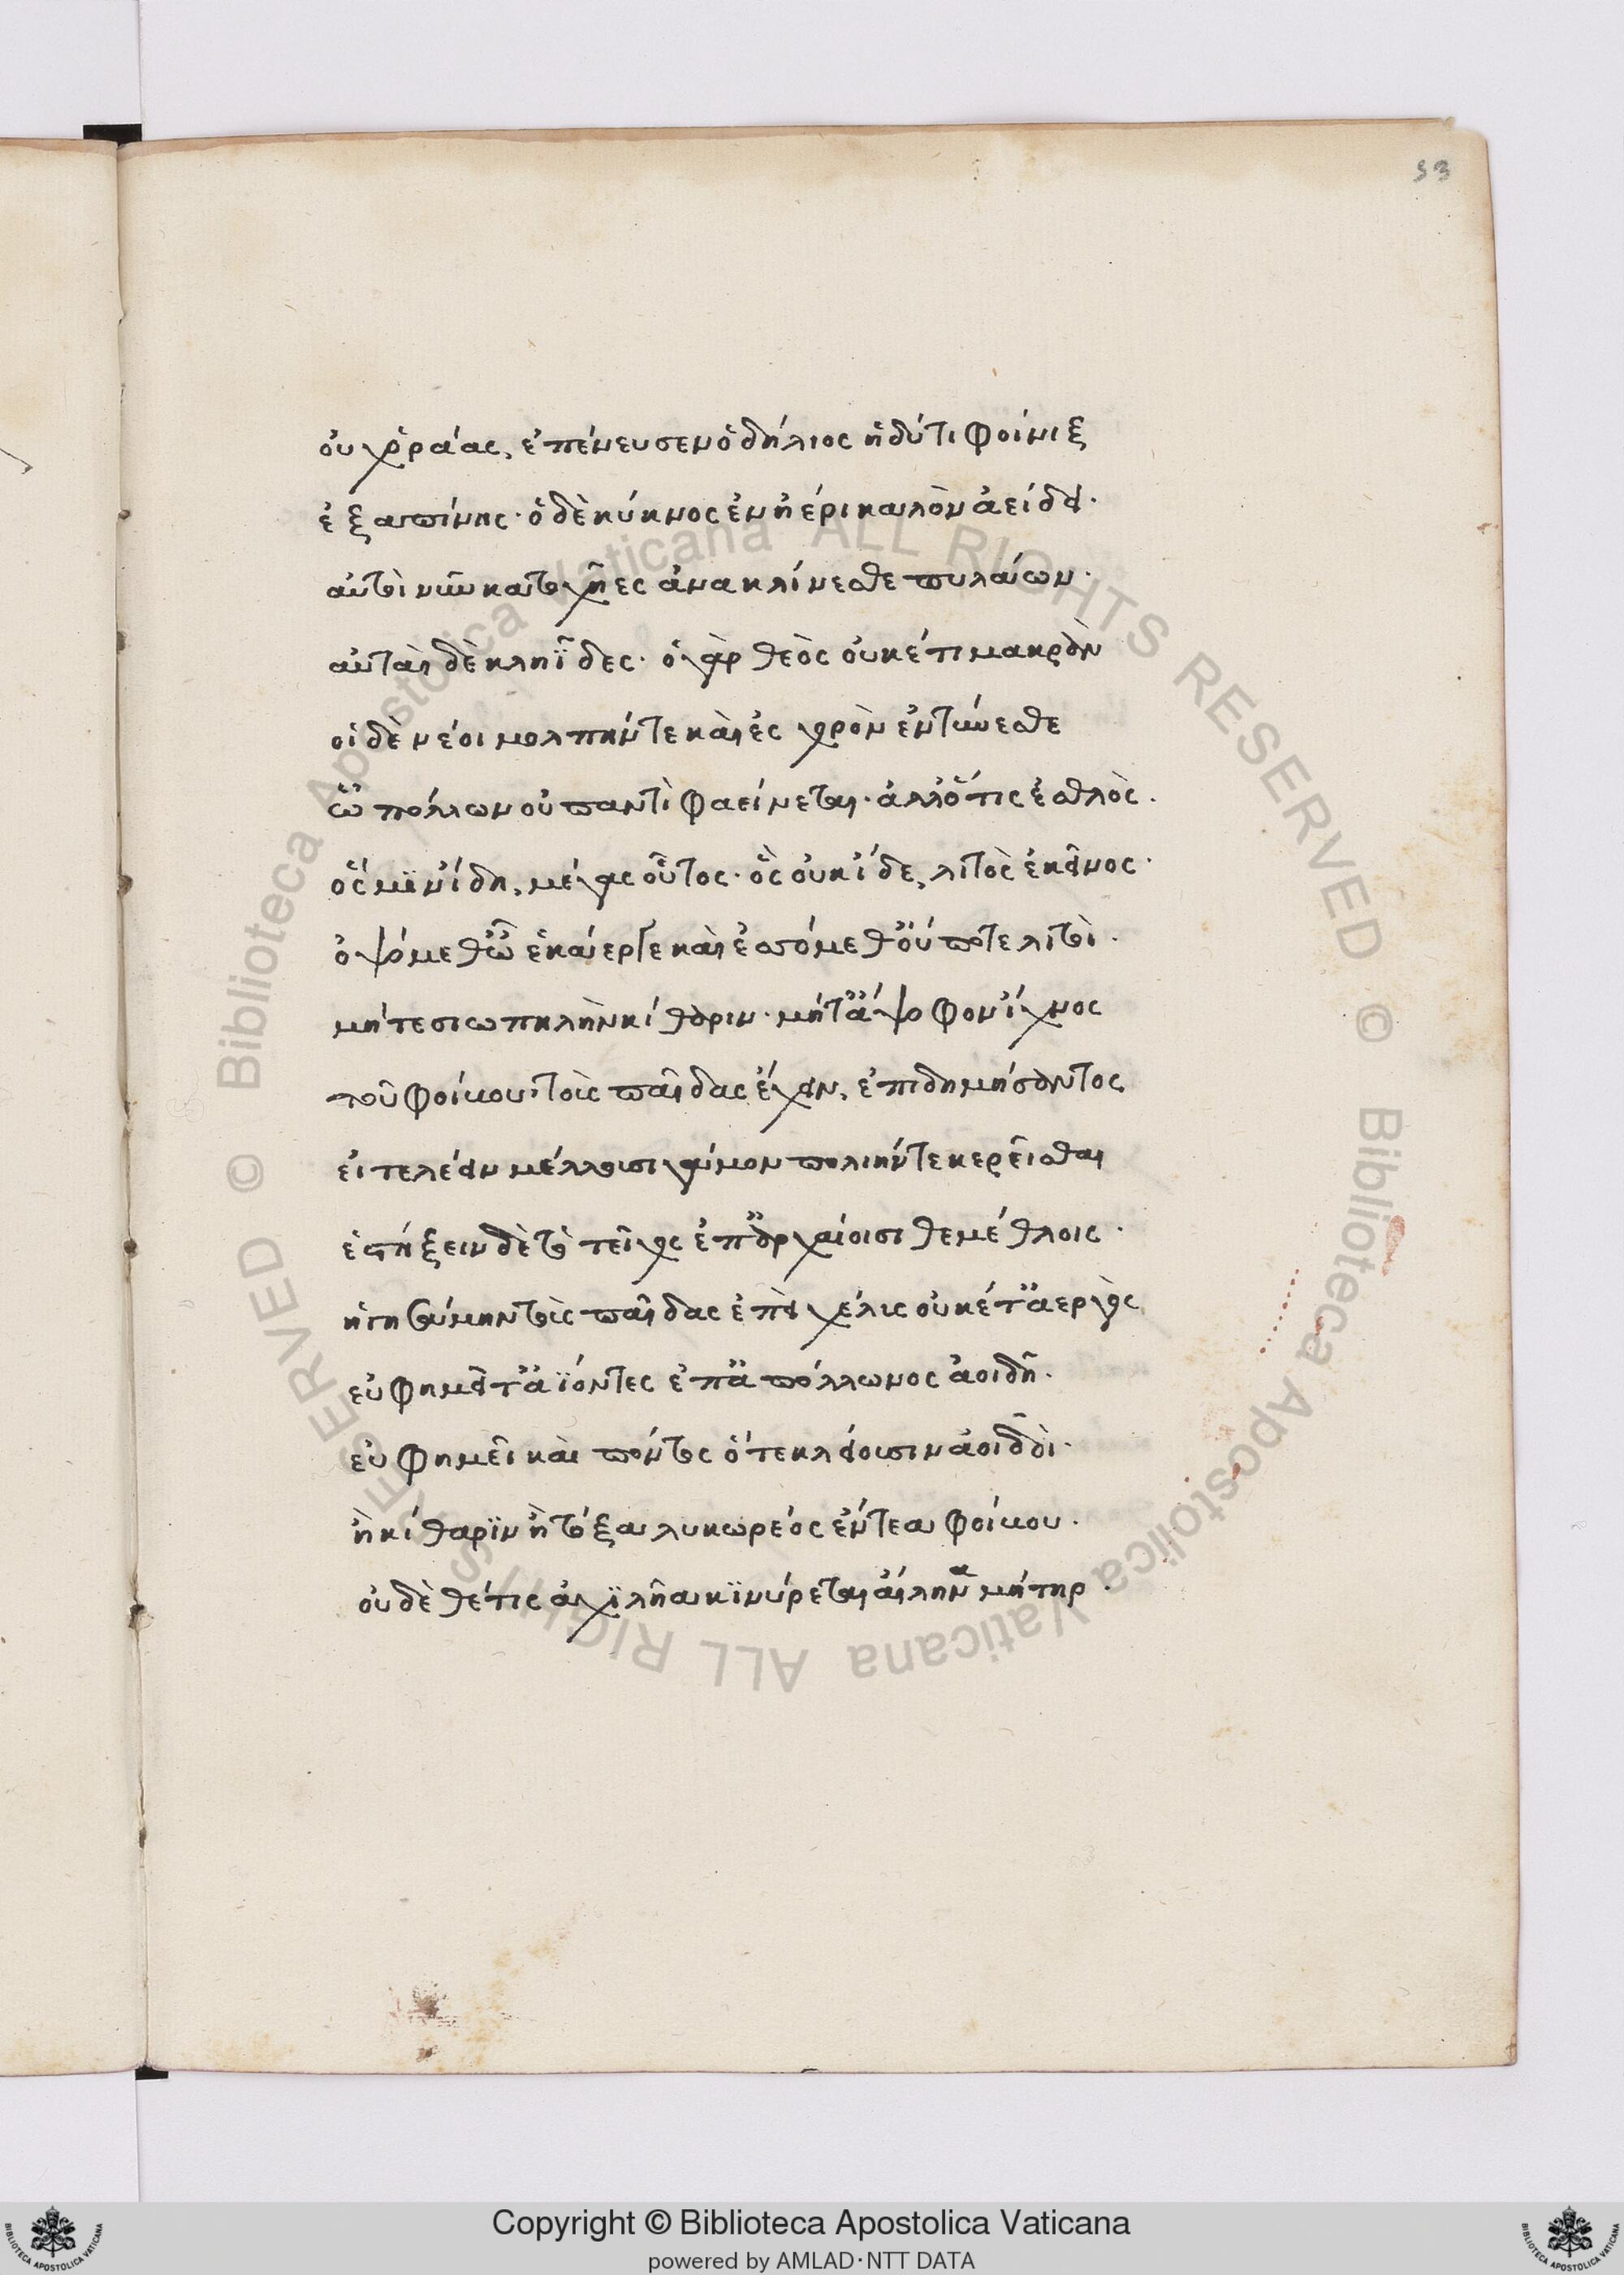 53
οὐχ ὁράας, ἐπένευσεν ὁ δήλιος ἡδύ τι φοίνιξ
ἐξαπίνης· ὁ δὲ κύκνος ἐν ἠέρι καλὸν ἀείδει·
αὐτοὶ νῦν κατοχῆες ἀνακλίνεσθε πυλάων·
αὐταὶ δὲ κληΐδες· ὁ γὰρ θεὸς οὐκέτι μακρὰν
οἱ δὲ νέοι μολπήν τε καὶ ἐς χορὸν ἐντύνεσθε
ὢ πόλλων οὐ παντὶ φαείνεται· ἀλλ' ὅτις ἐσθλὸς·
ὅς μϊν ἴδη, μέγας οὗτος· ὃς οὐκ ἴδε, λιτὸς ἐκεῖνος·
ὀψόμεθ' ὦ ἑκάεργε καὶ ἐσσόμεθ' οὔποτε λιτοὶ·
μήτε σιωπηλὴν κίθαριν· μήτ' ἄψοφον ἴχνος
τοῦ φοίβου τοὶς παῖδας ἔχειν, ἐπιδημήσαντος
εἰ τελέειν μέλλουσι γάμον πολιήν τε κερεῖσθαι
ἑστήξειν δὲ τὸ τεῖχος ἐπ' ἀρχαίοισι θεμέθλοις·
ἠγησάμην τοὶς παῖδας ἐπεὶ χέλις οὐκέτ' ἀεργὸς
εὐφημεῖτ' ἀΐοντες ἐπ' ἀπόλλωνος ἀοιδῆ·
εὐφημεῖ καὶ πόντος ὅτε κλείουσιν ἀοιδοὶ·
ἢ κίθαρϊν ἢ τόξα λυκωρέος ἔντεα φοίβου·
οὐδὲ θέτις ἀχϊλῆα κϊνύρεται αἴλινα μήτηρ·
Copyright © Biblioteca Apostolica Vaticana
powered by AMLAD·NTT DATA
© Biblioteca Apostolica Vaticana ALL RIGHTS RESERVED © Biblioteca Apostolica Vaticana ALL RIGHTS RESERVED
BIBLIOTECA APOSTOLICA VATICANA
BIBLIOTECA APOSTOLICA VATICANA